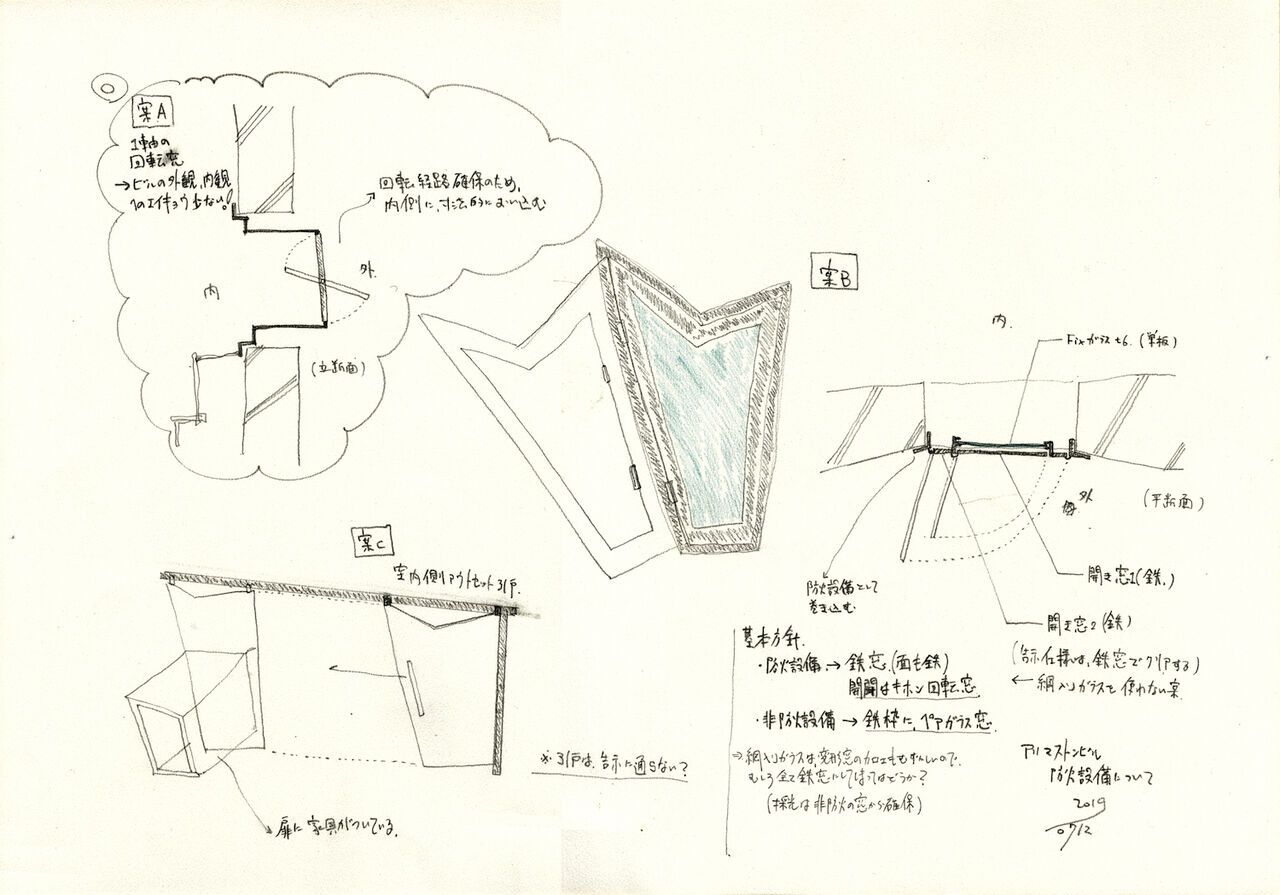 案A
1軸の
回転窓
→ビルの外観、内観
へのエイキョウ少ない!
回転経路確保のため、
内側に、寸法的にくい込む
外
内
(立断面)
案B
内
Fixガラス t6. (単板)
外
(平断面)
防火設備として
巻き込む
開き窓1(鉄)
開き窓2(鉄)
(告示仕様は、鉄窓でクリアする)
← 網入りガラスを使わない案
案C
室内側アウトセット引戸.
扉に家具がついている.
※引戸は、告示に適さない?
基本方針.
・防火設備→鉄窓(面も鉄)
開閉はキホン回転窓.
・非防火設備→鉄枠に、ペアガラス窓.
⇒網入りガラスは、変形窓の加工もむずかしいので、
むしろ全て鉄窓にしてしまってはどうか?
(採光は非防火の窓から確保)
アルマストンビル
防火設備について
2019
07/12